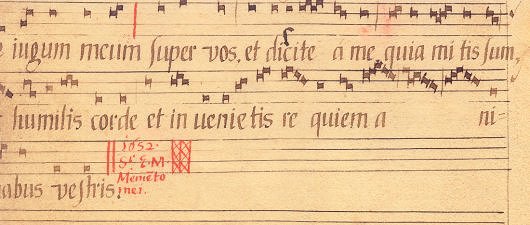 e iugum meum super vos, et dicite a me quia mi tis sum
humilis corde et in uenie tis re quiem a ni-
abus vestris.
1652.
Sr. E.M.
Memēto
mei.